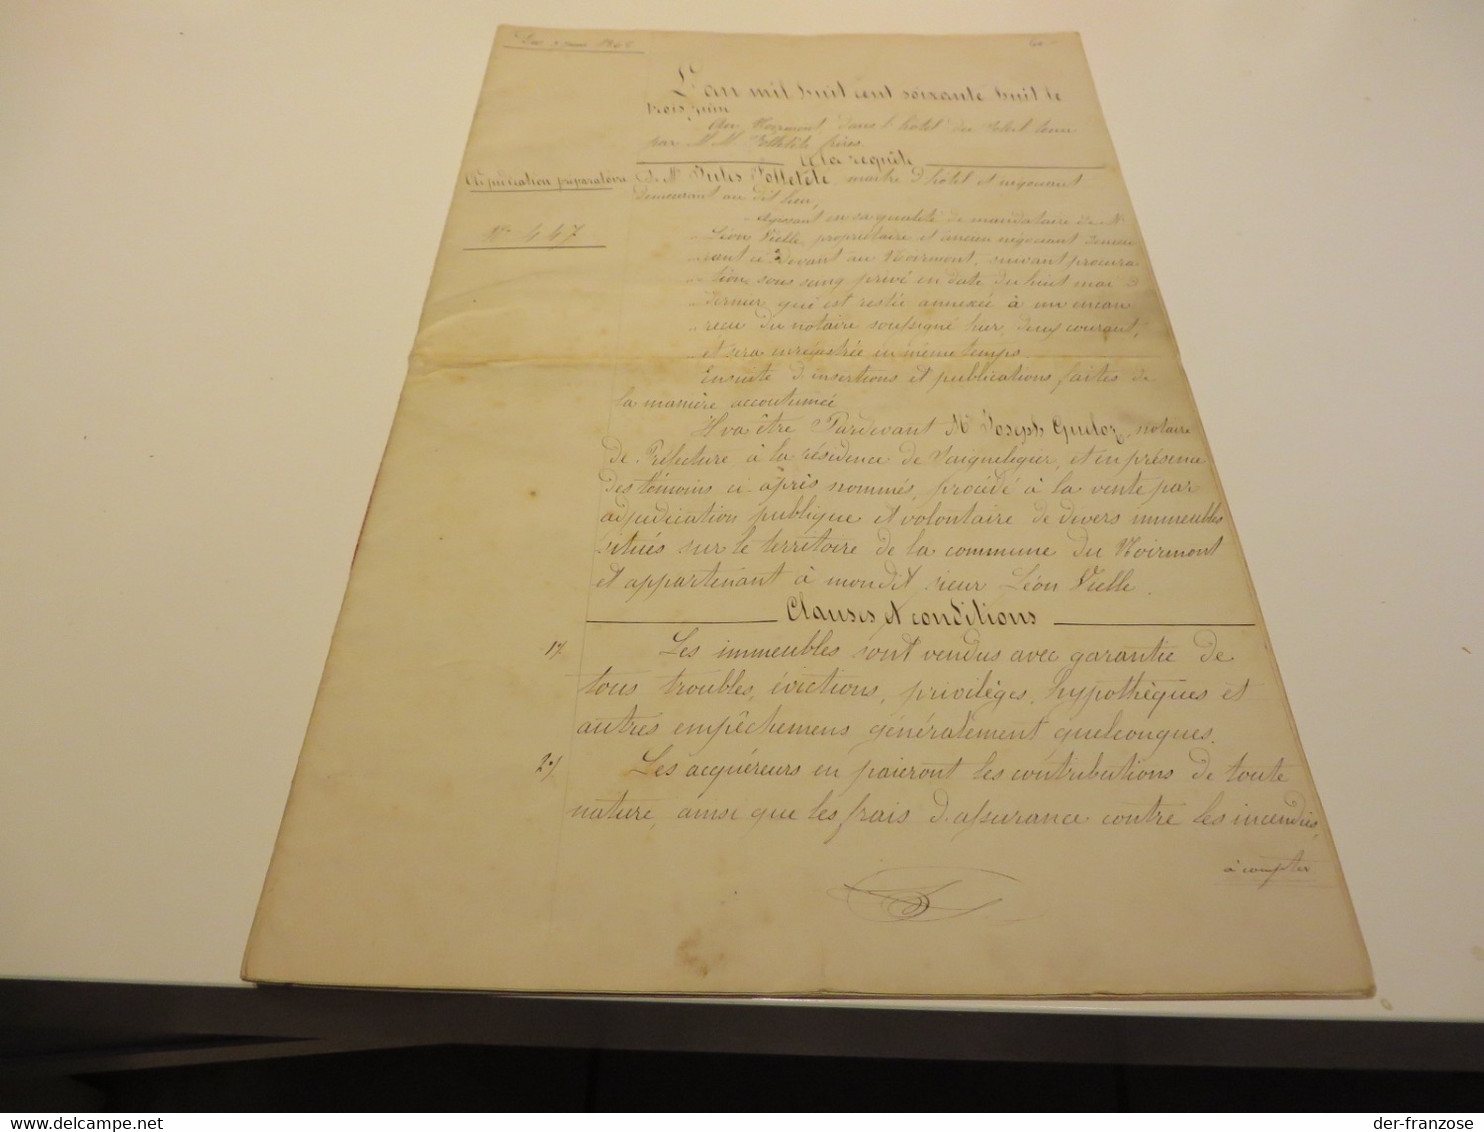 Du 3 juin 1868
L'an mil huit cent soixante huit le
trois juin
Au Noirmont dans l'hôtel du Soleil tenu
par M.M. Folletête frères.
A la requête
Adjudication préparatoire
N° 447
de Mr Jules Folletête, maître d'hôtel et négociant
demeurant au dit lieu,
Agissant en sa qualité de mandataire de Mr
Léon Vielle, propriétaire et ancien négociant demeu
rant ci devant au Noirmont, suivant procura
tion sous seing privé en date du huit mai
dernier qui est restée annexée à un encan
reçu du notaire soussigné hier, deux courant,
et sera enregistrée en même temps.
Ensuite d'insertions et publications faites de
la manière accoutumée
Il va être Pardevant Mr Joseph Gudor, notaire
de Préfecture, à la résidence de Saignelegier, et en présence
des témoins ci-après nommés, procédé à la vente par
adjudication publique et volontaire de divers immeubles
situés sur le territoire de la commune du Noirmont
et appartenant à mondit sieur Léon Vielle.
Clauses et conditions
1°/. Les immeubles sont vendus avec garantie de
tous troubles, évictions, privilèges, hypothèques et
autres empêchemens généralement quelconques.
2°/. Les acquéreurs en paieront les contributions de toute
nature, ainsi que les frais d'assurance contre les incendies,
à compter
www.delcampe.net
der-franzose